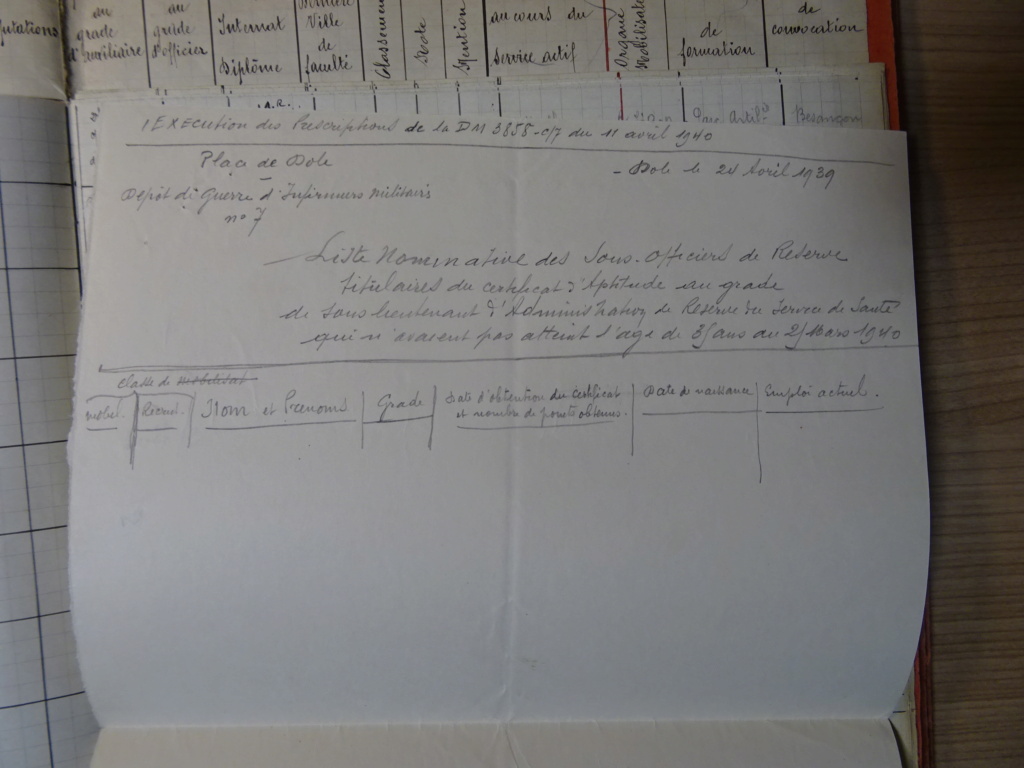 au
au
Dernière
de
putations
grade
grade
Internat
Ville
au cours du
de
convocation
d'auxiliaire
d'officier
de
Classement
Mention
Organe
Mobilisateur
formation
Diplôme
faculté
service actif
Besançon
Execution des Prescriptions de la DM 3858-c/7 du 11 avril 1940
Place de Dole
- Dole le 24 Avril 1939
Dépôt de Guerre d'Infirmiers Militaires
n° 7
Liste Nominative des Sous-Officiers de Réserve
titulaires du certificat d'Aptitude au grade
de Sous lieutenant d'Administration de Réserve du Service de Santé
qui n'avaient pas atteint l'age de 35 ans au 25 Mars 1940
classe de mobilisat
mobil. Recrut. Nom et Prenoms Grade Date d'obtention du certificat Date de naissance Emploi actuel.
et nombre de points obtenus.